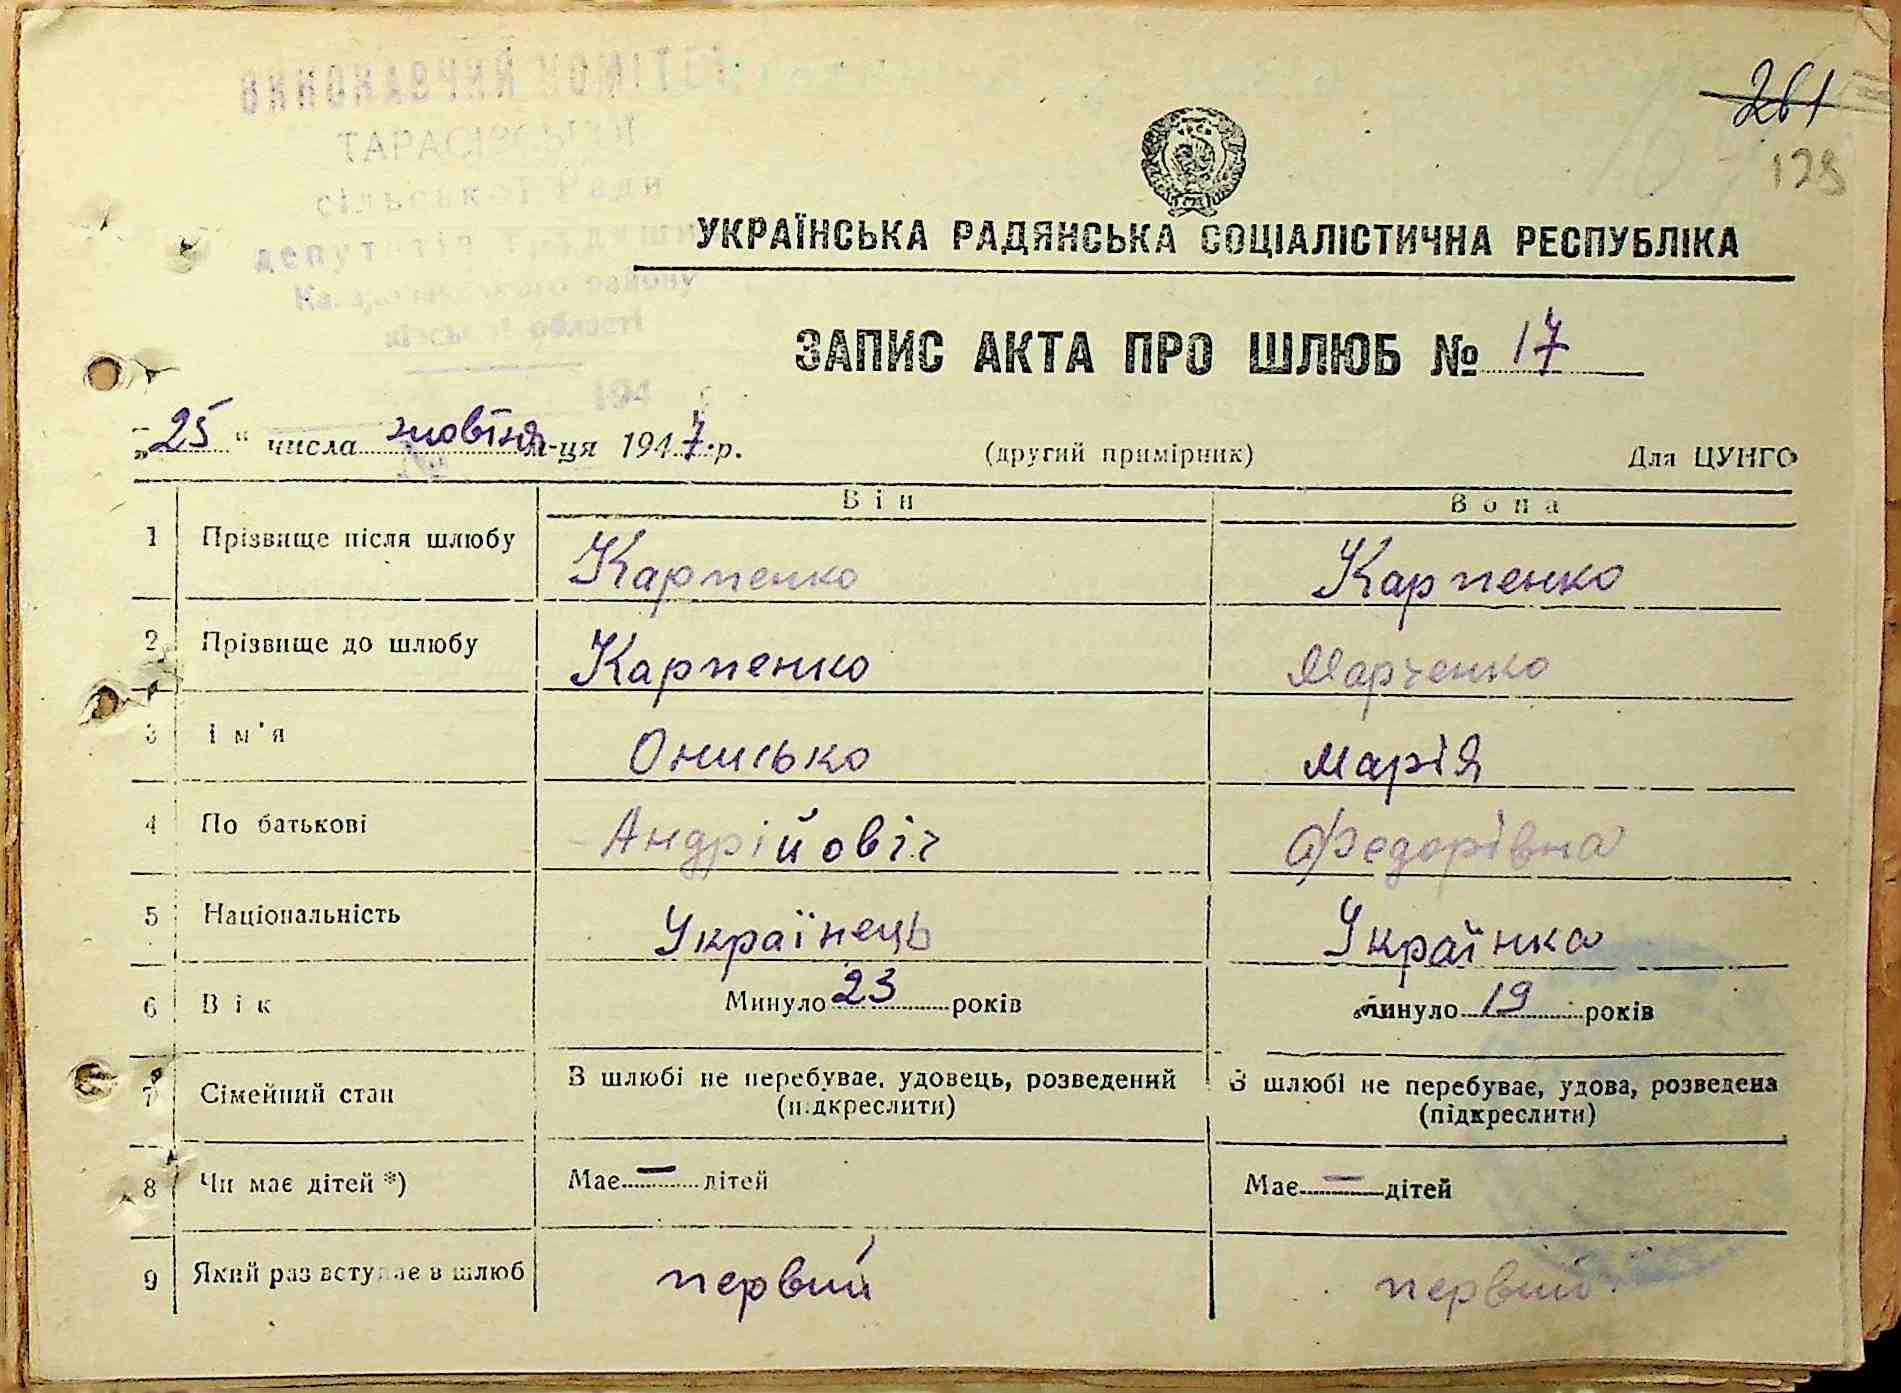 261
128
ВИКОНАВЧИЙ КОМІТЕТ
ТАРАСІВСЬКОЇ
сільської Ради
депутатів
району
області
194
УКРАЇНСЬКА РАДЯНСЬКА СОЦІАЛІСТИЧНА РЕСПУБЛІКА
ЗАПИС АКТА ПРО ШЛЮБ № 17
„25“ числа жовтня м-ця 1947 р. (другий примірник) Для ЦУНГО
Він Вона
1 Прізвище після шлюбу Карпенко Карпенко
2 Прізвище до шлюбу Карпенко Марченко
3 Ім'я Онисько Марія
4 По батькові Андрійовіч Федорівна
5 Національність Українець Українка
6 Вік Минуло 23 років Минуло 19 років
7 Сімейний стан В шлюбі не перебуває, удовець, розведений В шлюбі не перебуває, удова, розведена
(підкреслити) (підкреслити)
8 Чи має дітей *) Має — дітей Має — дітей
9 Який раз вступає в шлюб первий первий